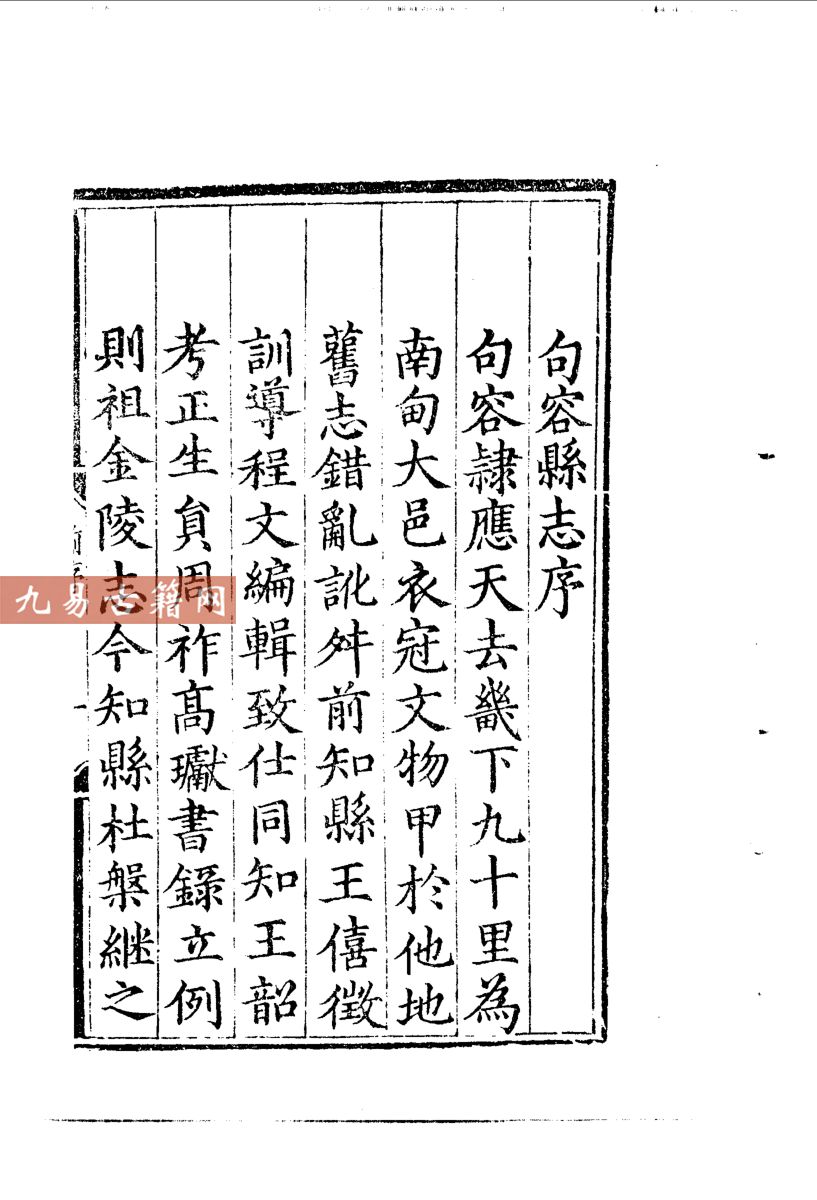 句容縣志序
句容隷應天去畿下九十里為
南甸大邑衣冠文物甲於他地
舊志錯亂訛舛前知縣王僖徵
訓導程文編輯致仕同知王韶
考正生員周祚髙瓛書錄立例
則祖金陵志今知縣杜槃継之
九易古籍网